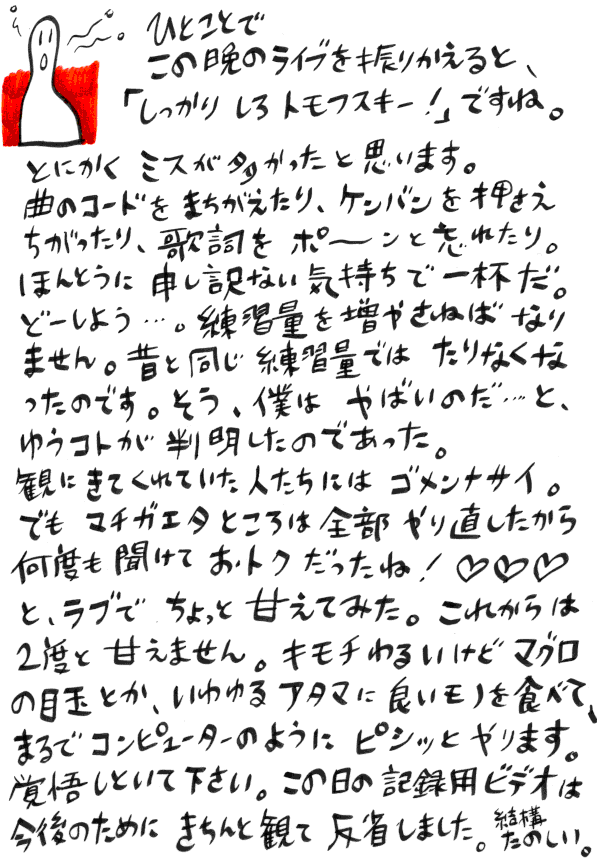 ひとことで
この晩のライブを振りかえると、
「しっかりしろトモフスキー!」ですね。
とにかくミスが多かったと思います。
曲のコードをまちがえたり、ケンバンを押さえ
ちがったり、歌詞をポ〜ンと忘れたり。
ほんとうに申し訳ない気持ちで一杯だ。
どーしよう…。練習量を増やさねばなり
ません。昔と同じ練習量ではたりなくな
ったのです。そう、僕はやばいのだ…と、
ゆうコトが判明したのであった。
観にきてくれていた人たちにはゴメンナサイ。
でもマチガエタところは全部やり直したから
何度も聞けておトクだったね!♡♡♡
と、ラブでちょっと甘えてみた。これからは
2度と甘えません。キモチわるいけどマグロ
の目玉とか、いわゆるアタマに良いモノを食べて、
まるでコンピューターのようにピシッとやります。
覚悟しといて下さい。この日の記録用ビデオは
今後のためにきちんと観て反省しました。結構たのしい。